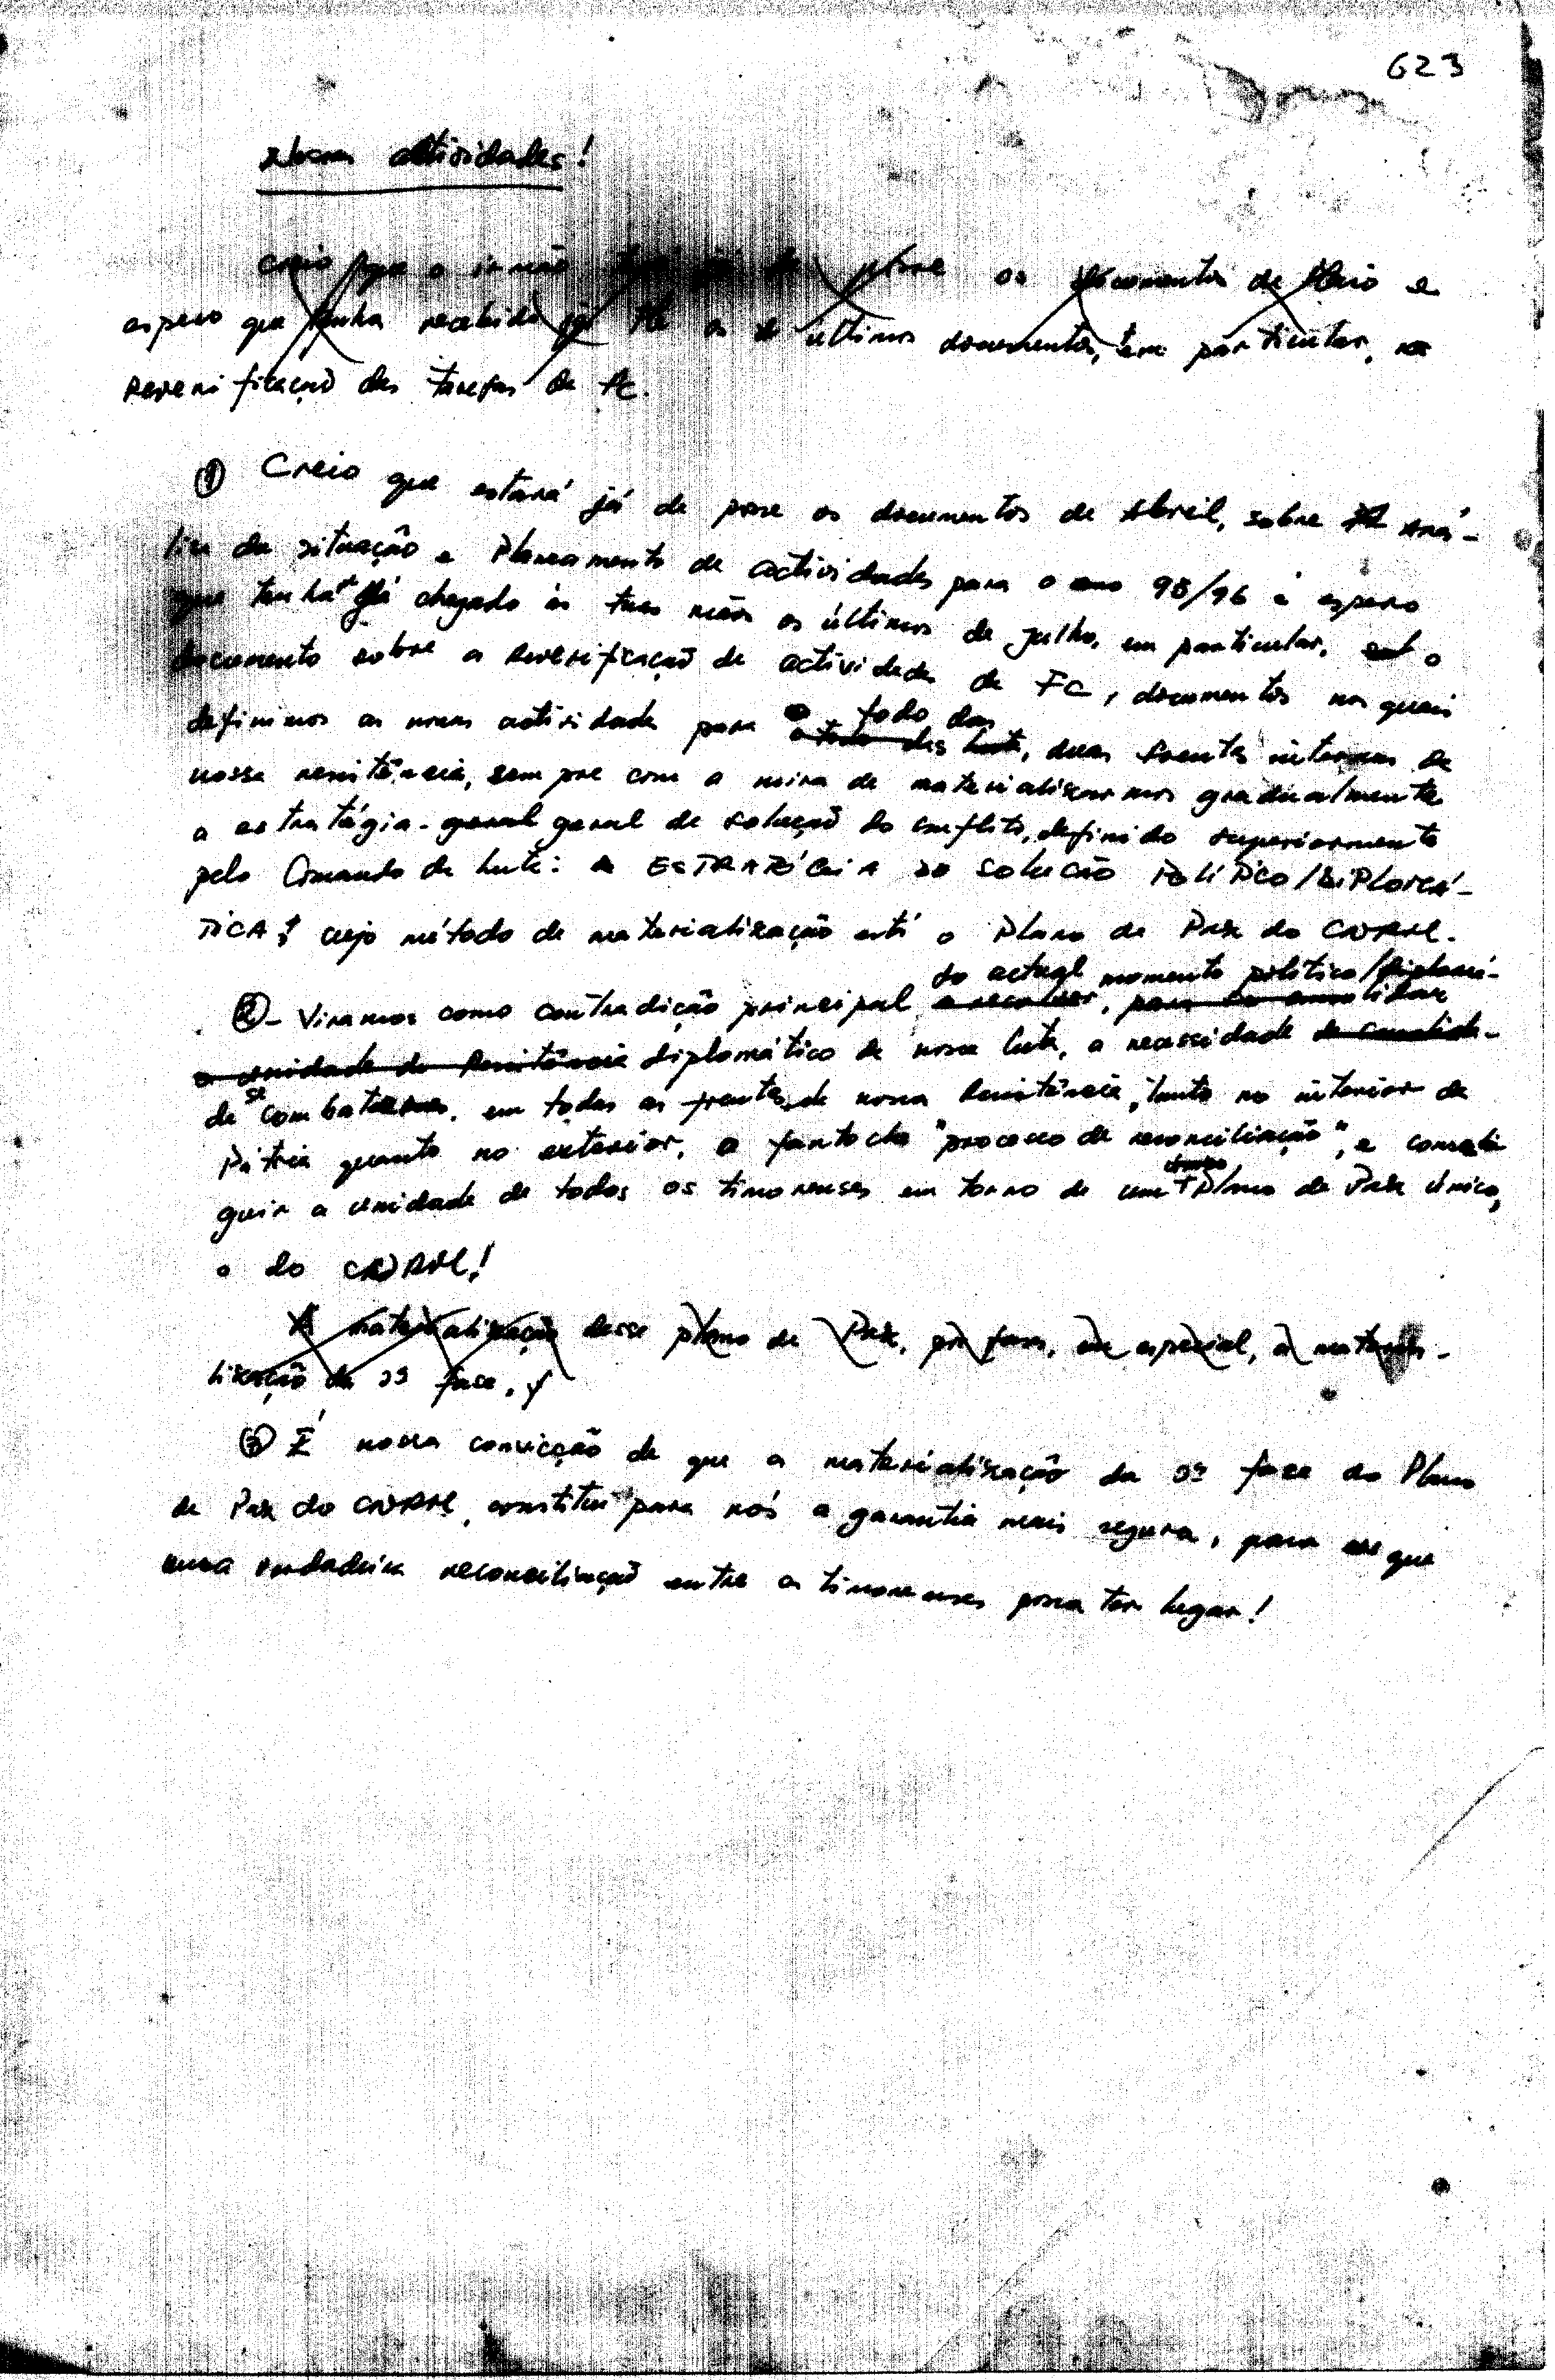 623
actividades!
Creio que o irmão os documentos de Maio e
espero que tenha recebido já os últimos documentos, em particular, 
Reversificação das tarefas da FC.
① Creio que estará já de posse os documentos de Abril, sobre Aná-
lise da situação e Planeamento de actividades para o ano 95/96 e espero
que tenha já chegado às tuas mãos os últimos de julho, em particular, o
documento sobre a Reversificação de actividades da FC, documentos nos quais
definimos as novas actividades para todo das duas Frentes internas da
nossa resistência, sempre com a mira de materializarmos gradualmente
a estratégia geral geral de solução do conflito, definido superiormente
pelo Comando da Luta: A ESTRATÉGIA DO SOLUÇÃO POLÍTICO/DIPLOMÁ-
TICA, cujo método de materialização está o Plano de Paz do CNRM.
do actual momento político/diplomá-
② - Viramos como contradição principal a resolver, para consolidar
a unidade da Resistência diplomático da nossa luta, a necessidade
de se combater, em todas as frentes da nossa Resistência, tanto no interior da
Pátria quanto no exterior, o fantoche "processo de reconciliação", e conse-
guir a unidade de todos os timorenses em torno de um Plano de Paz único,
o do CNRM!
A materialização desse plano de Paz, por fases, em especial, a materia-
lização da 2ª fase,
③ É nossa convicção de que a materialização da 2ª fase do Plano
de Paz do CNRM, constitui para nós a garantia mais segura, para que
uma verdadeira reconciliação entre os timorenses possa ter lugar!